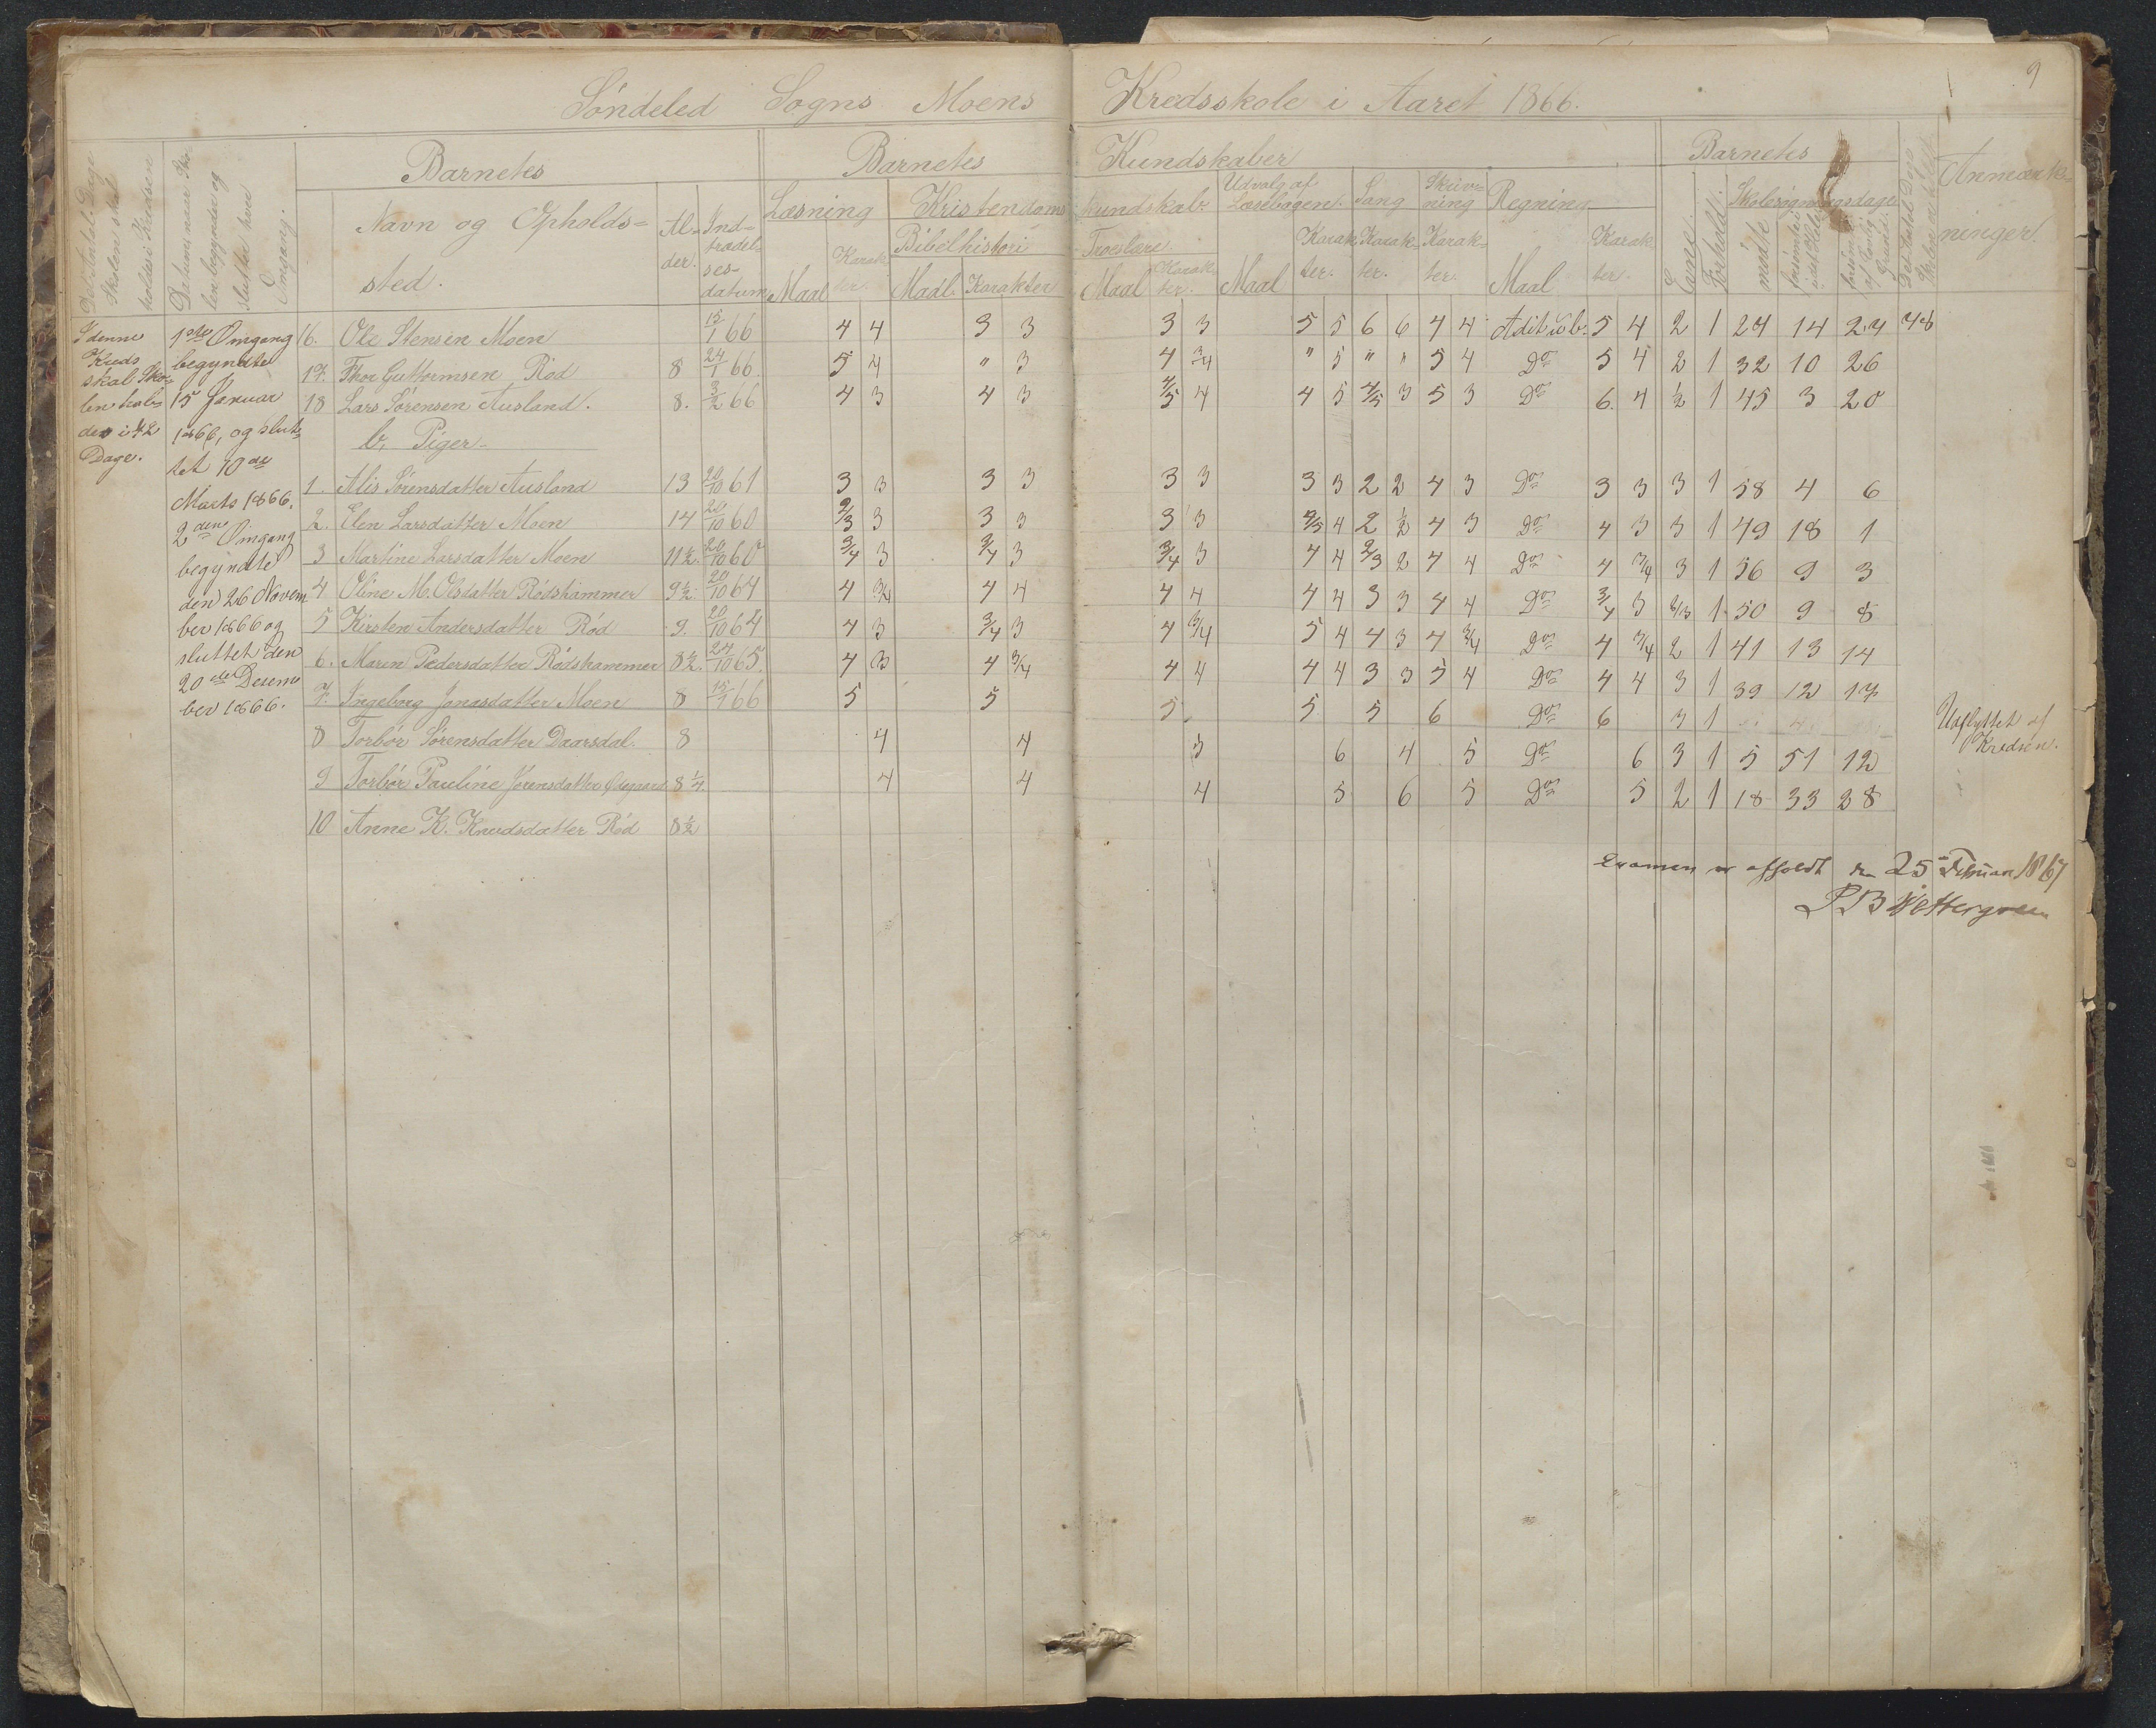 Søndeled Sogns Moens Kredsskole i Aaret 1866.
9
Det Antal Dage Skolen skal holdes i Kredsen
Datum naar Skolen begynder og slutter hver Omgang.
Barnets
Navn og Opholdssted.
Alder.
Indtrædelsesdatum
Barnets Kundskaber
Læsning
Maal
Karakter.
Kristendomskundskab.
Bibelhistori
Maal. Karakter
Troeslære
Maal Karakter.
Udvalg af Læsebogen.
Maal
Karakter.
Sang
Karakter.
Skrivning
Karakter.
Regning
Maal
Karakter.
Barnets
Evne.
Forhold.
Skolesøgningsdage
mødte
forsømte i det Hele
forsømte af lovlig Grund.
Det Antal Dage Skolen er holdt
Anmærkninger.
I denne
Kreds
skal Sko-
len hol-
des i 72
Dage.
1ste Omgang
begyndte
15 Januar
1866, og slut-
tet 10de
Marts 1866.
2den Omgang
begyndte
den 26 Novem
ber 1866 og
sluttet den
20de Desem
ber 1866.
16. Ole Stensen Moen 15/1 66 4 4 3 3 3 3 5 5 6 6 4 4 Adit i ub. 5 4 2 1 24 14 24 48
17. Thor Guttormsen Rød 8 24/1 66. 5 4 " 3 4 3/4 " 5 " " 5 4 Do 5 4 2 1 32 10 26
18 Lars Sørensen Ausland. 8. 3/2 66 4 3 4 3 4/5 4 4 5 4/5 3 5 3 Do 6. 4 1/2 1 45 3 20
b, Piger
1. Alis Sørensdatter Ausland 13 20/10 61 3 3 3 3 3 3 3 3 2 2 4 3 Do 3 3 3 1 58 4 6
2. Elen Larsdatter Moen 14 20/10 60 2/3 3 3 3 3 3 4/5 4 2 1/2 4 3 Do 4 3 3 1 49 18 1
3 Martine Larsdatter Moen 11 1/2. 20/10 60 3/4 3 3/4 3 3/4 3 4 4 2/3 2 4 4 Do 4 3/4 3 1 56 9 3
4 Oline M. Olsdatter Rødshammer 9 1/2. 20/10 64 4 3/4 4 4 4 4 4 4 3 3 4 4 Do 3/4 3 2/3 1 50 9 8
5 Kirsten Andersdatter Rød 9. 20/10 64 4 3 3/4 3 4 3/4 5 4 4 3 4 3/4 Do 4 3/4 2 1 41 13 14
6. Maren Pedersdatter Rødshammer 8 1/2. 24/10 65. 4 3 4 3/4 4 4 4 4 3 3 5 4 Do 4 4 3 1 39 12 17
7. Ingeborg Jonasdatter Moen 8 15/1 66 5 5 5. 5 5 6 Do 6 3 1 Udflyttet af Kredsen.
8 Torbør Sørensdatter Daarsdal. 8 4 4 3 6 4 5 Do 6 3 1 5 51 12
9 Torbør Pauline Jørensdatter Øiegaard 8 1/4 4 4 4 5 6 5 Do 5 2 1 18 33 28
10 Anne K. Knudsdatter Rød 8 1/2
Examen er afholdt den 25 Februar 1867
P B Wettergreen